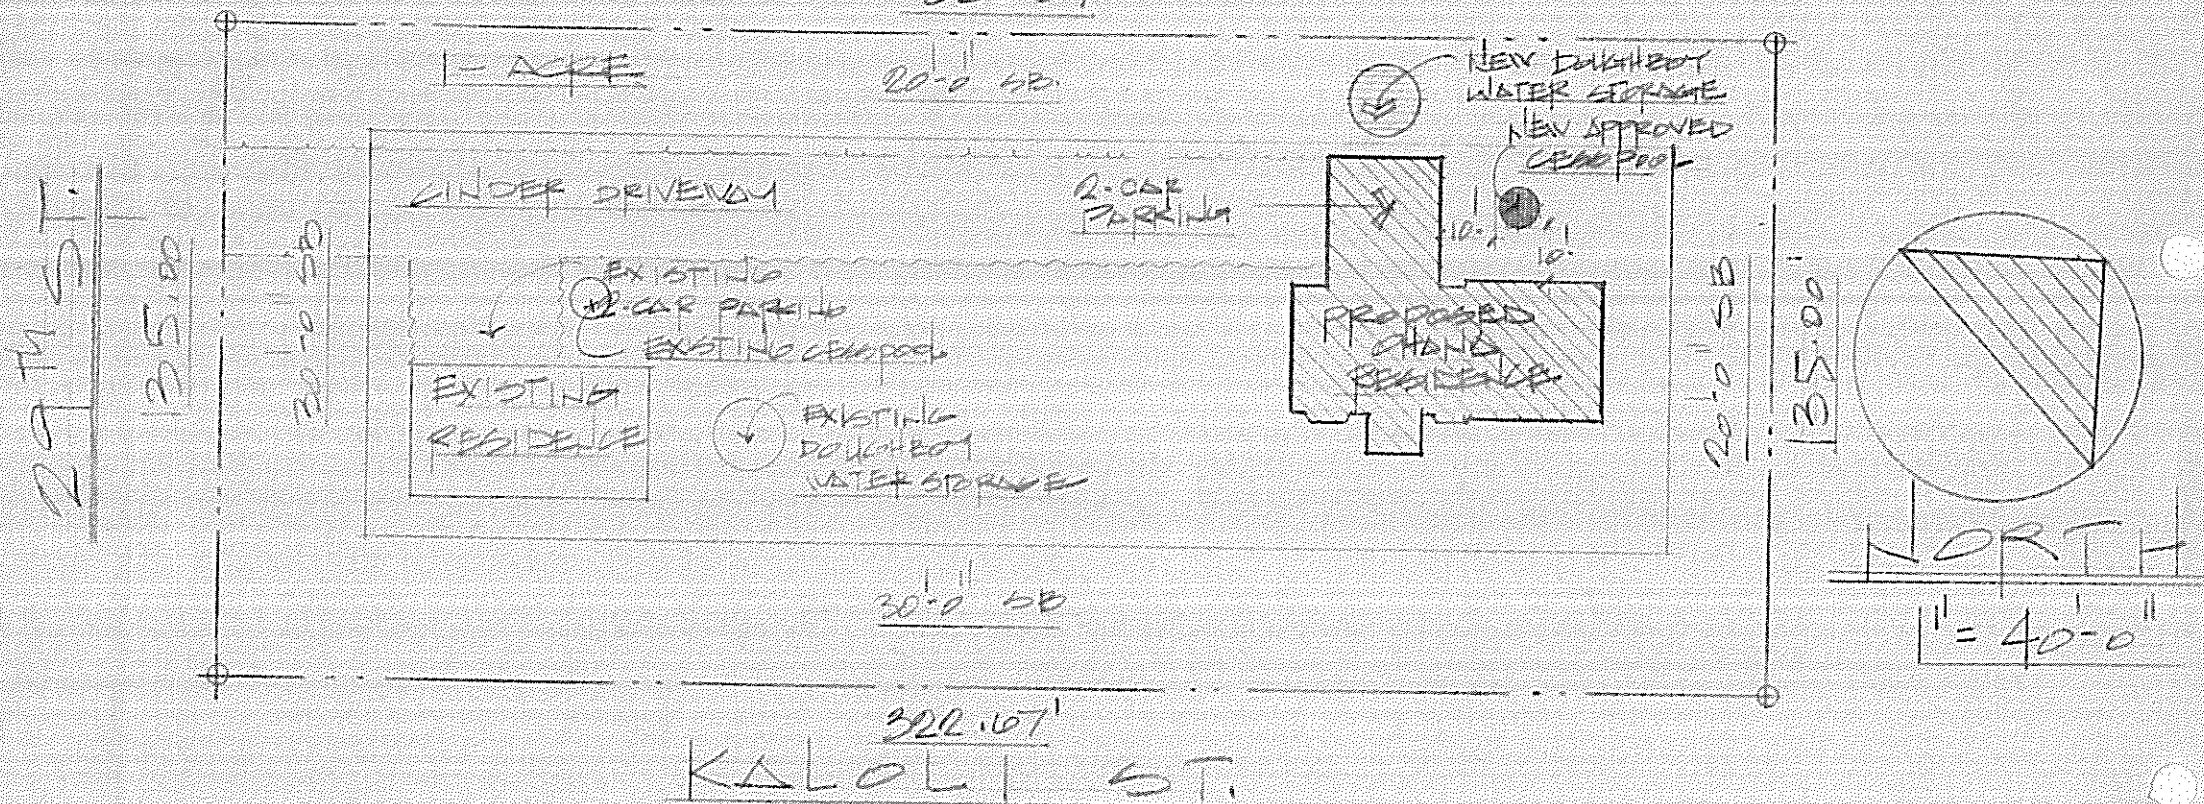 1- ACRE
20'-0" SB.
NEW DOUGHBOY
WATER STORAGE
NEW APPROVED
CESSPOOL
29TH ST.
135.00
30'-0" SB
CINDER DRIVEWAY
2-CAR
PARKING
10'
10'
EXISTING
2-CAR PARKING
EXISTING CESSPOOL
EXISTING
RESIDENCE
EXISTING
DOUGHBOY
WATER STORAGE
PROPOSED
OHANA
RESIDENCE
20'-0" SB
135.00'
NORTH
1" = 40'-0"
30'-0" SB
322.67'
KALOLI ST.